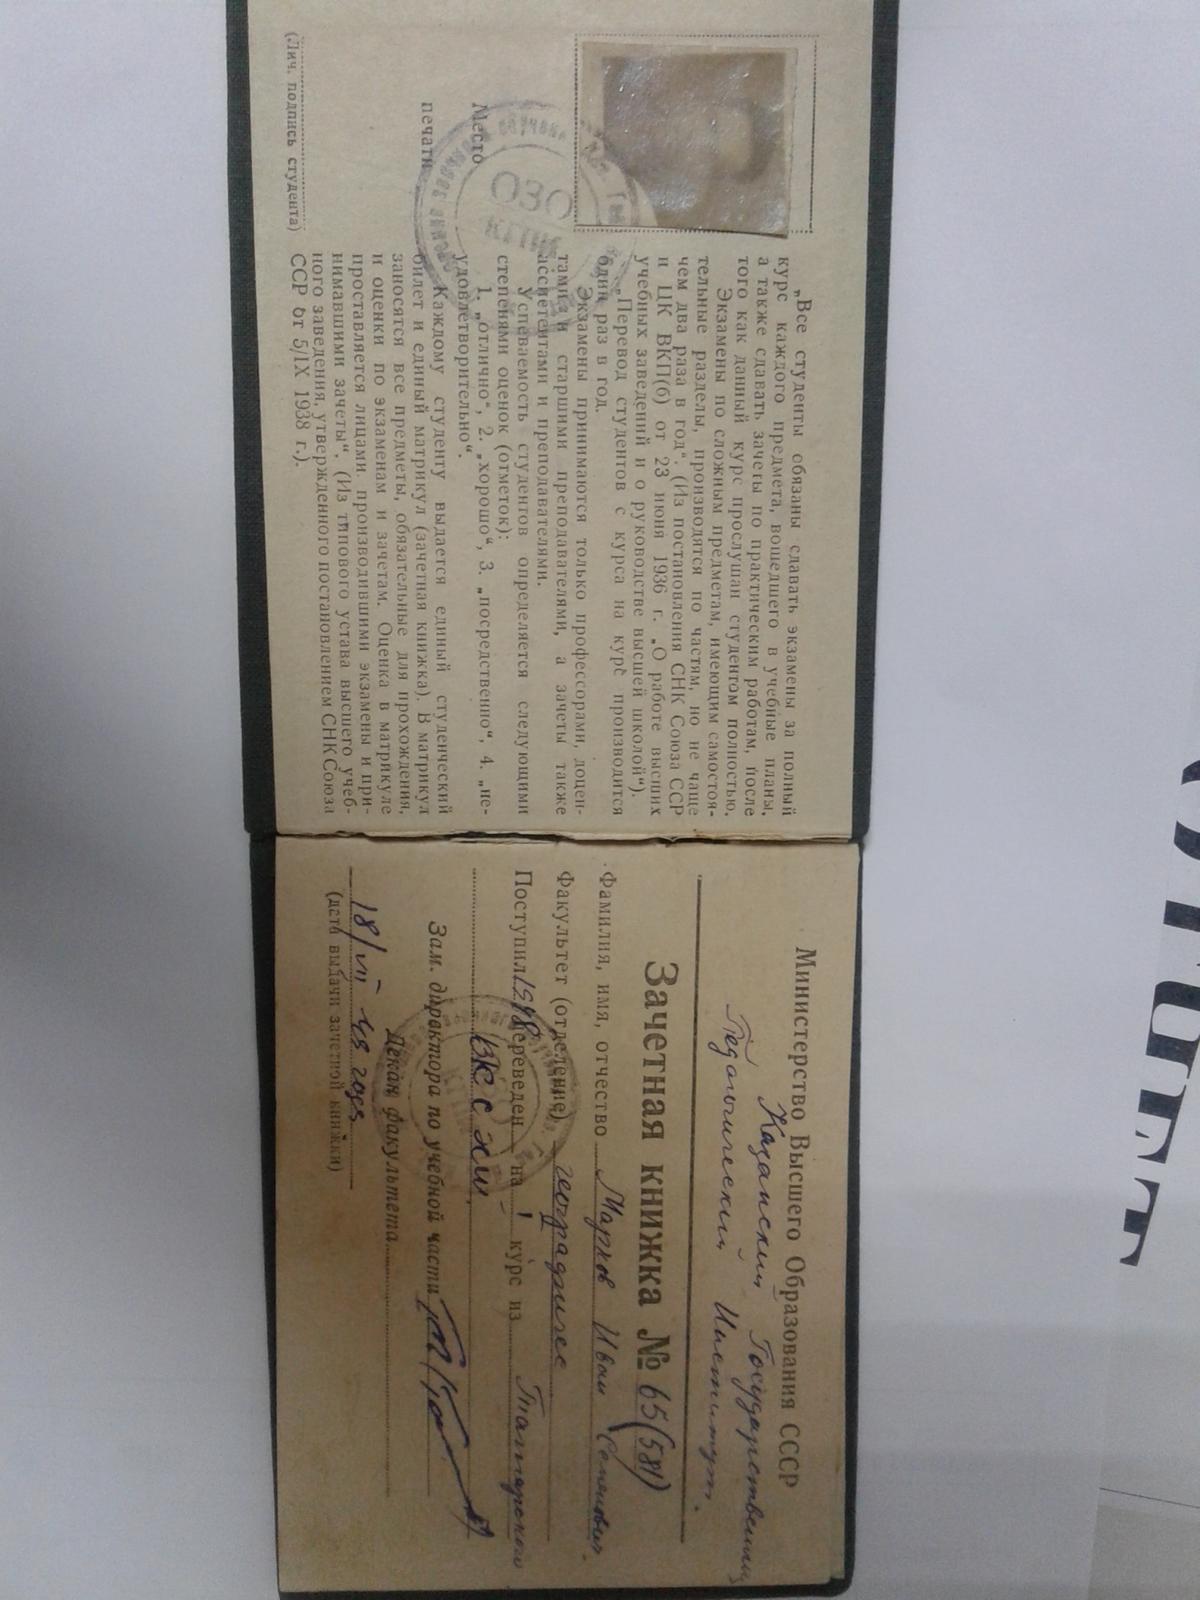 „Все студенты обязаны сдавать экзамены за полный
курс каждого предмета, вошедшего в учебные планы,
а также сдавать зачеты по практическим работам, после
того как данный курс прослушан студентом полностью.
Экзамены по сложным предметам, имеющим самостоя-
тельные разделы, производятся по частям, но не чаще
чем два раза в год“. (Из постановления СНК Союза ССР
и ЦК ВКП(б) от 23 июня 1936 г. „О работе высших
учебных заведений и о руководстве высшей школой“).
„Перевод студентов с курса на курс производится
один раз в год.
Экзамены принимаются только профессорами, доцен-
тами и старшими преподавателями, а зачеты также
ассистентами и преподавателями.
Успеваемость студентов определяется следующими
степенями оценок (отметок):
1. „отлично“, 2. „хорошо“, 3. „посредственно“, 4. „не-
удовлетворительно“.
Каждому студенту выдается единый студенческий
билет и единый матрикул (зачетная книжка). В матрикул
заносятся все предметы, обязательные для прохождения,
и оценки по экзаменам и зачетам. Оценка в матрикуле
проставляется лицами, производившими экзамены и при-
нимавшими зачеты“. (Из типового устава высшего учеб-
ного заведения, утвержденного постановлением СНК Союза
ССР от 5/IX 1938 г.).
Место
печати
ОЗО
КГПИ
(Лич. подпись студента)
Министерство Высшего Образования СССР
Казанский Государственный
Педагогический Институт.
Зачетная книжка № 65(581)
Фамилия, имя, отчество Марков Иван Семенович.
Факультет (отделение) географичес
Поступил 1948 Переведен на I курс из Татарского
Зам. директора по учебной части
Декан факультета
18/VII 48 года
(дата выдачи зачетной книжки)